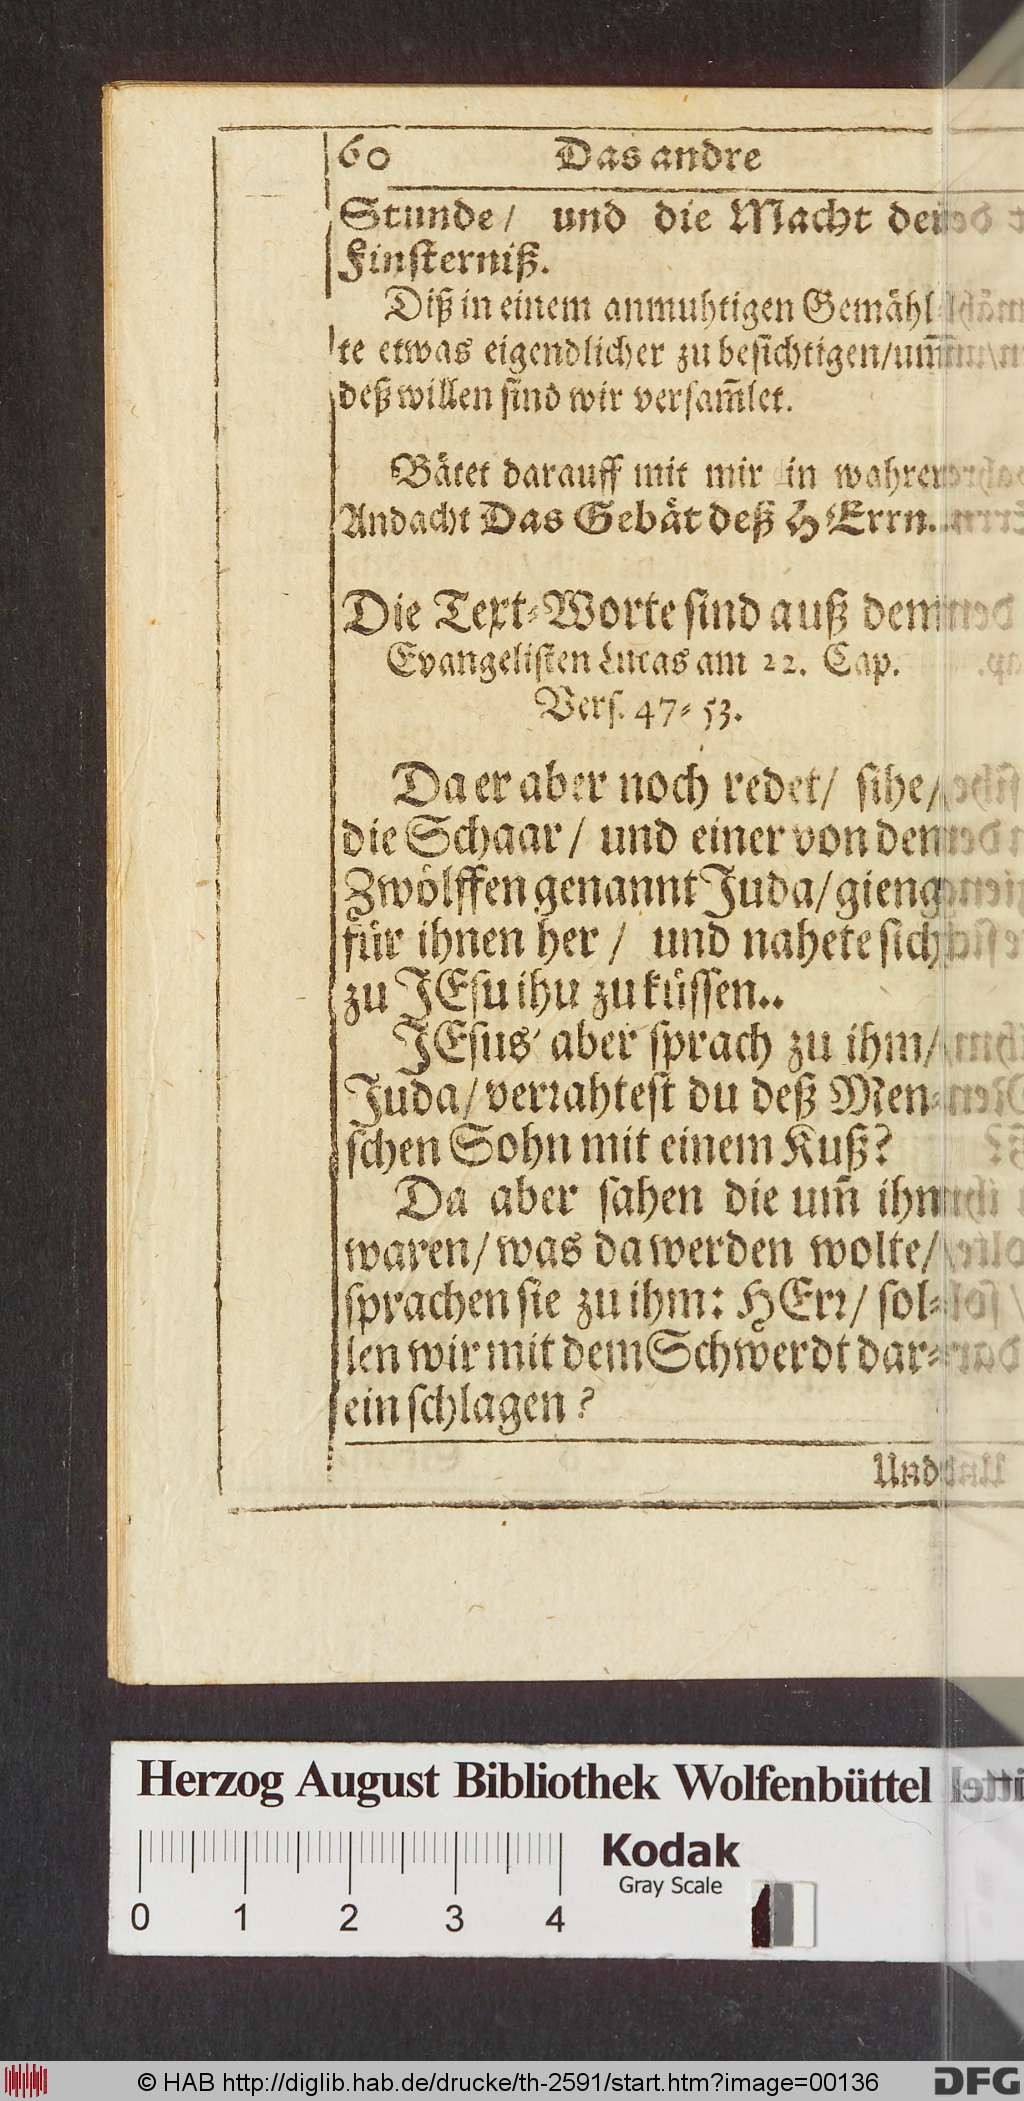 60 Das andre
Stunde / und die Macht der
Finsterniß.
Diß in einem anmuhtigen Gemähl-
te etwas eigendlicher zu besichtigen/um̃
deß willen sind wir versam̃let.
Bätet darauff mit mir in wahrer
Andacht Das Gebät deß HErrn.
Die Text-Worte sind auß dem
Evangelisten Lucas am 22. Cap.
Vers. 47-53.
Da er aber noch redet/ sihe/
die Schaar / und einer von den
Zwölffen genannt Juda/gieng
für ihnen her / und nahete sich
zu JEsu ihu zu küssen..
JEsus aber sprach zu ihm/
Juda/verrahtest du deß Men-
schen Sohn mit einem Kuß?
Da aber sahen die um̃ ihn
waren/was da werden wolte/
sprachen sie zu ihm: HErr/ sol-
len wir mit dem Schwerdt dar-
ein schlagen?
Und
Herzog August Bibliothek Wolfenbüttel
Kodak
Gray Scale
0 1 2 3 4
© HAB http://diglib.hab.de/drucke/th-2591/start.htm?image=00136
DFG